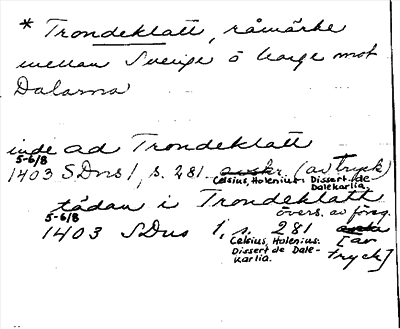 * Trondeklatt, råmärke
mellan Sverige o Norge mot
Dalarna
inde ad Trondeklatt
5-6/8
1403 SDns 1, s. 281 avskr. (av tryck)
Celsius, Holenius. Dissert. de
Dalekarlia.
tädan i Trondeklath
5-6/8 övers. av föreg.
1403 SDns 1, s. 281 [av
Celsius, Holenius. tryck]
Dissert de Dale-
karlia.